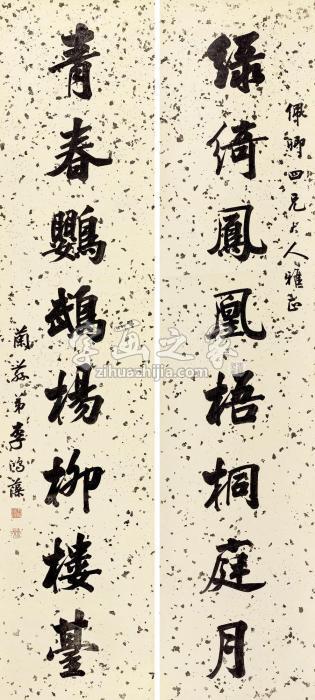 佩卿四兄大人雅正
綠綺鳳凰梧桐庭月
青春鸚鵡楊柳樓臺
蘭蓀弟李鴻藻
字画之家
zihuazhijia.com